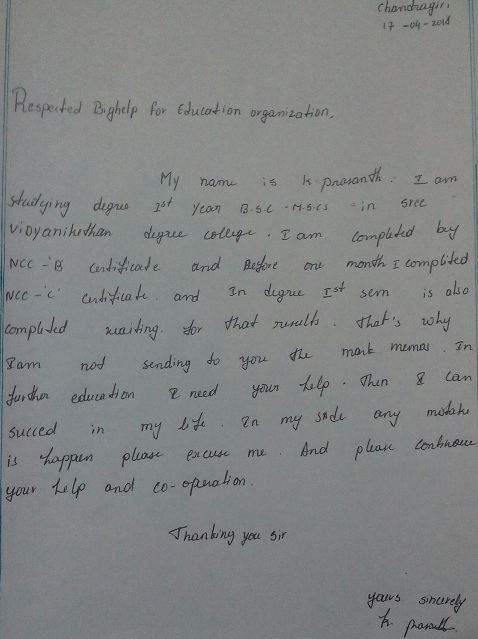 Chandragiri
17-04-2018
Respected Bighelp for Education organization,
My name is k prasanth. I am
studying degree Ist year B.SC-M.S.CS in sree
vidyanikethan degree college. I am completed my
NCC-'B' certificate and Before one month I complited
NCC-'C' certificate. and In degree Ist sem is also
completed waiting. for that results. That's why
I am not sending to you the mark memos. In
further education I need your help. Then I can
succed in my life. In my side any mistake
is happen please excuse me. And please continoue
your help and co-operation.
Thanking you sir
yours sincerely
K. prasanth.